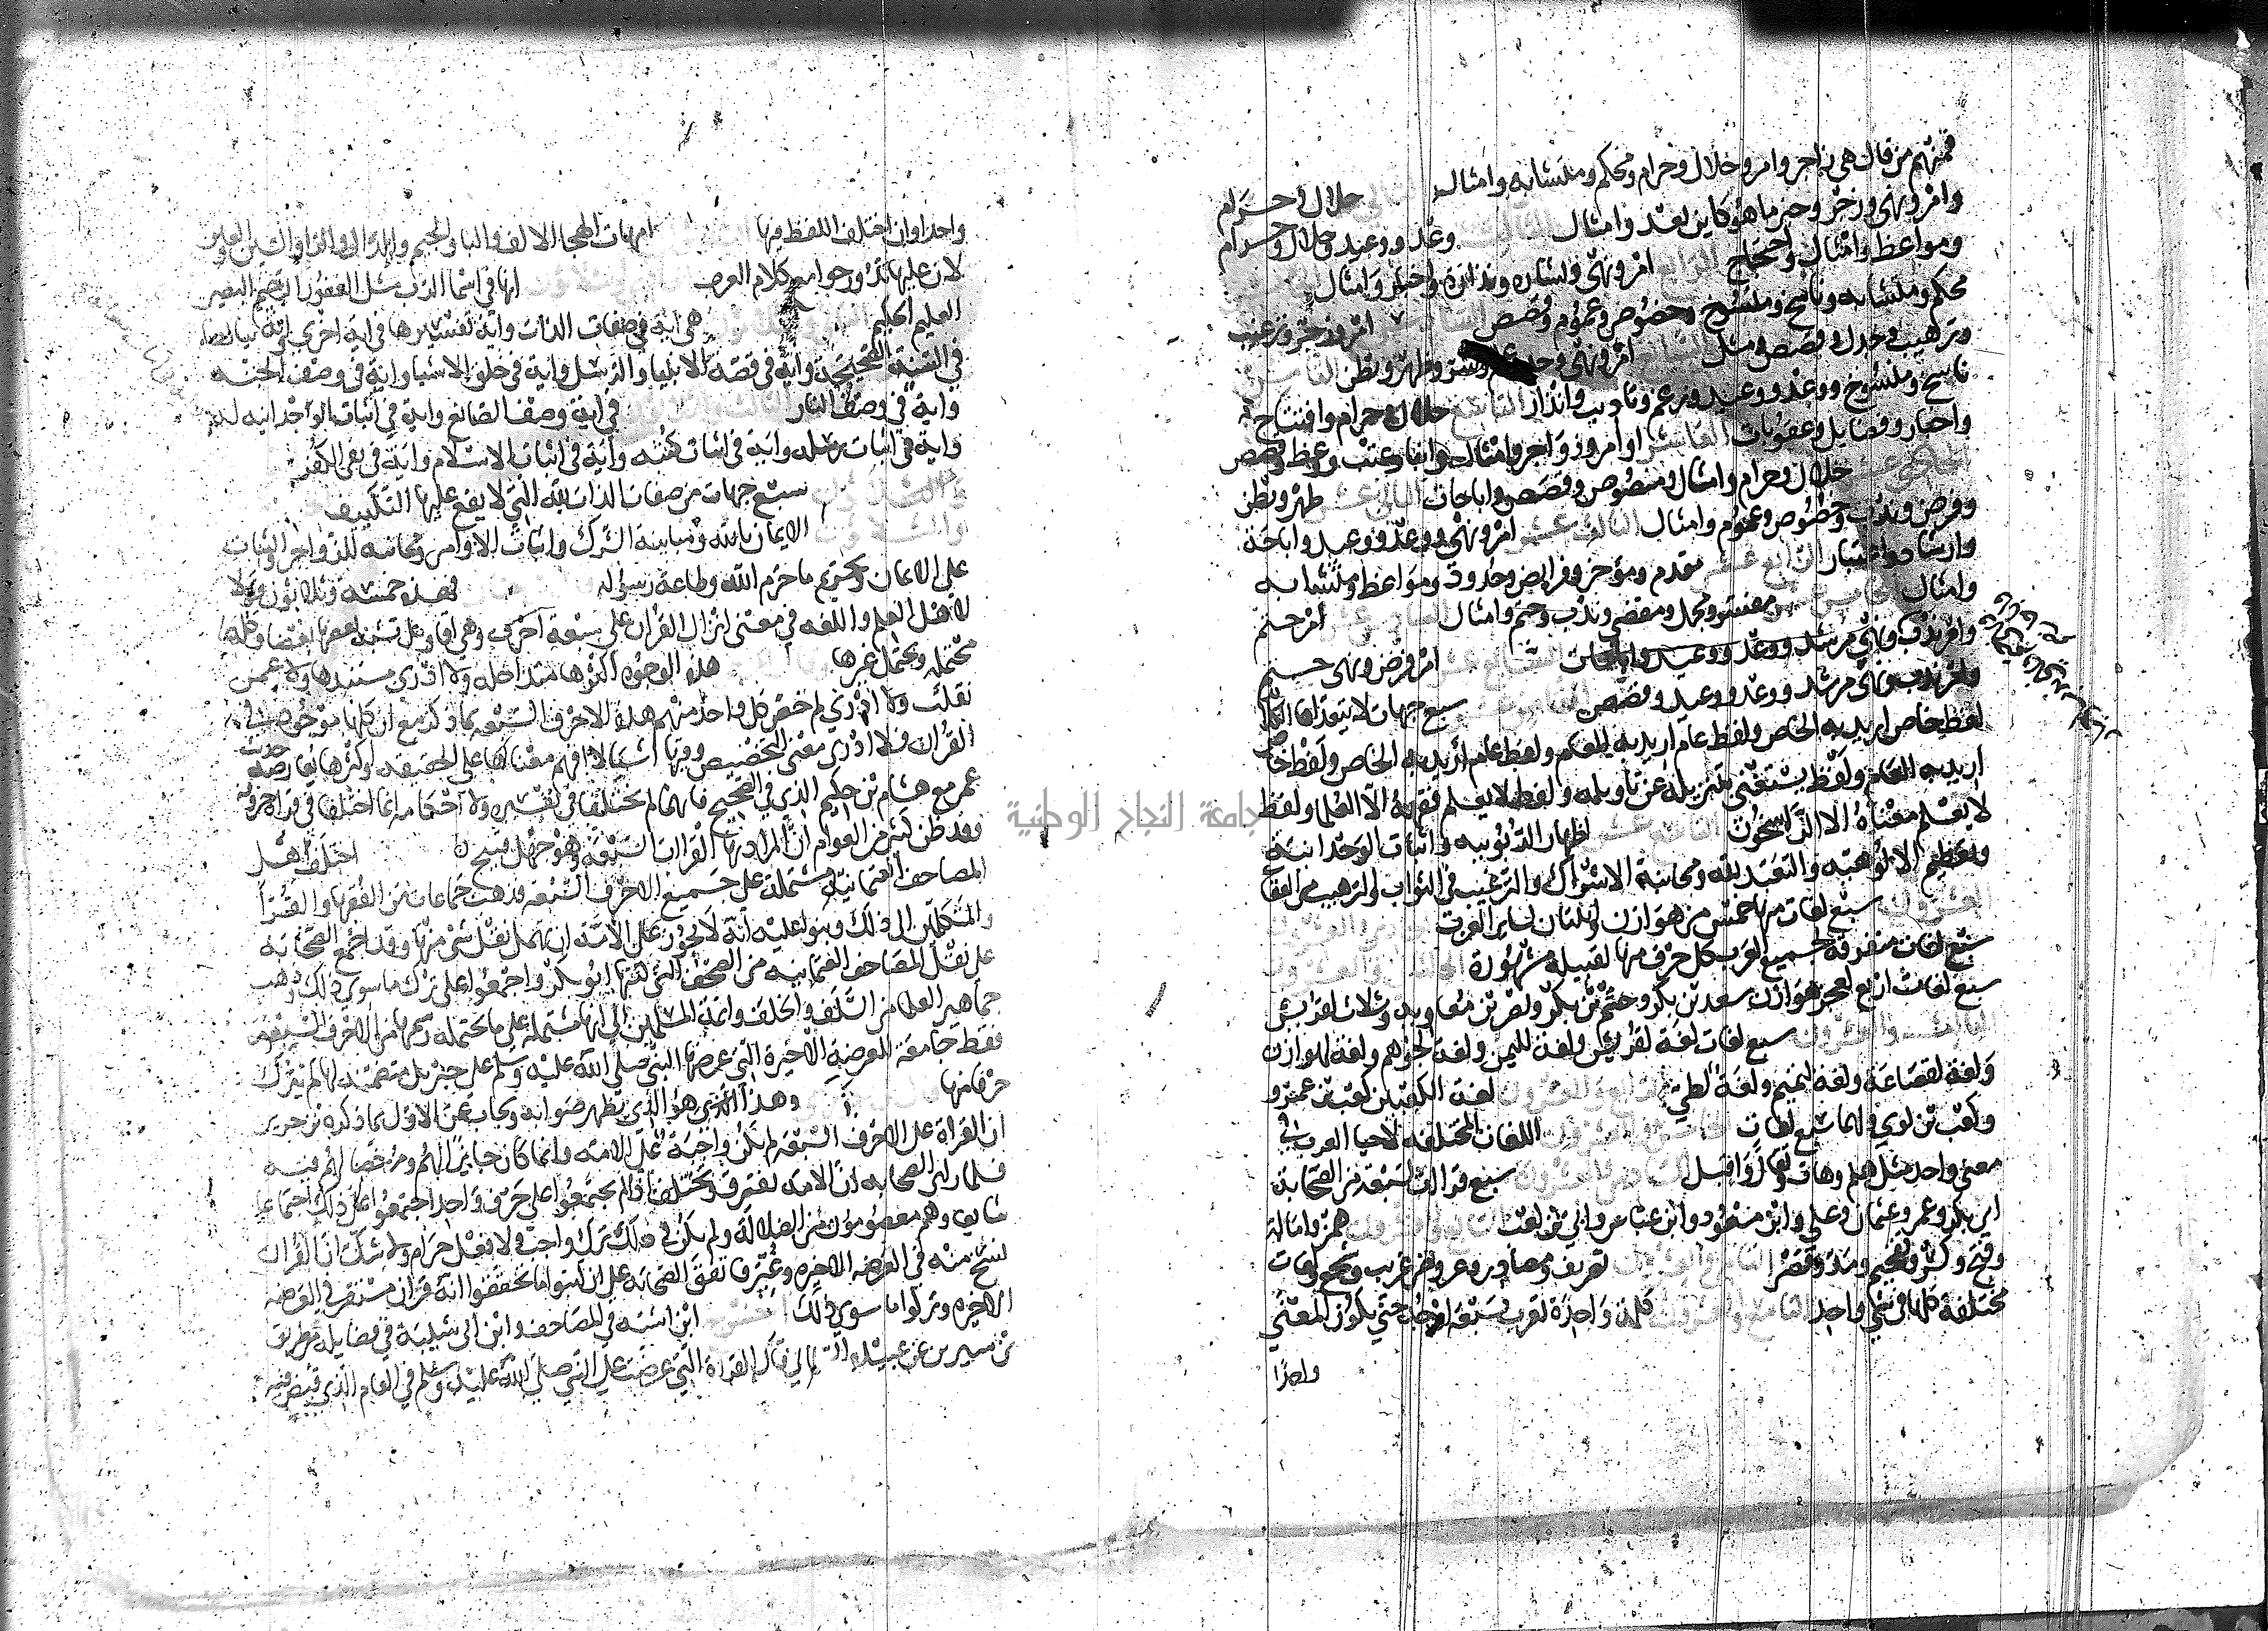 فمنهم من قال هي زاجر وامر وحلال وحرام ومحكم ومتشابه وامثال حلال وحرام
وامر ونهي وزجر وخبر ما هو كاين بعد وامثال وعد ووعيد وحلال وحرام
ومواعظ وامثال واحتجاج الرابع امر ونهي وبشاره ونذاره واخبار وامثال
محكم ومتشابه وناسخ ومنسوخ وخصوص وعموم وقصص امر وزجر وترغيب
وترهيب وجدل وقصص ومثل امر ونهي وحد وسر وظهر وبطن
ناسخ ومنسوخ ووعد ووعيد ورغم وتاديب وانذار حلال وحرام وافتتاح
واخبار وفضايل وعقوبات العاشر اوامر وزواجر وامثال وانباء وعتب ووعظ وقصص
حلال وحرام وامثال ومنصوص وقصص واباحات ظهر وبطن
وفرض وندب وخصوص وعموم وامثال الثالث عشر امر ونهي ووعد ووعيد واباحة
وارشاد واعتبار الرابع عشر مقدم وموخر وفرايض وحدود ومواعظ ومتشابه
وامثال مفسر ومجمل ومقضي وندب وحتم وامثال امر حتم
وامر ندب ونهي مرشد ووعد ووعيد واباحات امر فرض ونهي حتم
وامر ندب ونهي مرشد ووعد ووعيد وقصص سبع جهات لا يتعداها الكلام
لفظ خاص اريد به الخاص ولفظ عام اريد به العام ولفظ عام اريد به الخاص ولفظ خاص
اريد به العام ولفظ يستغنى بتنزيله عن تاويله ولفظ لا يعلم فقهه الا العلما ولفظ
لا يعلم معناه الا الراسخون اظهار الربوبيه واثبات الوحدانية
وتعظيم الالوهية والتعبد لله ومجانبة الاشراك والترغيب في الثواب والترهيب من العقاب
العشرون سبع لغات منها خمس من هوازن واثنتان لساير العرب
سبع لغات متفرقة لجميع العرب كل حرف منها لقبيلة مشهورة
سبع لغات اربع لعجز هوازن سعد بن بكر وجشم بن بكر ونصر بن معاويه وثلاث لقريش
سبع لغات لغة لقريش ولغة لليمن ولغة لجرهم ولغة لهوازن
ولغة لقضاعة ولغة لتميم ولغة لطي لغة الكعبين كعب بن عمرو
وكعب بن لوي ولهما سبع لغات اللغات المختلفة لاحيا العرب في
معنى واحد مثل هلم وهات وتعال واقبل سبع قراات لسبعة من الصحابة
ابي بكر وعمر وعثمان وعلي وابن مسعود وابن عباس وابي بن كعب همز وامالة
وفتح وكسر وتفخيم ومد وقصر تصريف ومصادر وعروض وغريب وسجع ولغات
مختلفة كلها في شي واحد كلمة واحدة تعرب بسبعة اوجه حتى يكون المعنى
واحدا
واحدا وان اختلف اللفظ فيها امهات الهجا الالف والبا والجيم والدال والرا والسين والعين
لان عليها تدور جوامع كلام العرب انها في اسما الرب مثل الغفور الرحيم السميع البصير
العليم الحكيم هي اية في صفات الذات واية تفسيرها في اية اخرى واية بيانها
في السنة الصحيحة واية في قصة الانبيا والرسل واية في خلق الاشيا واية في وصف الجنة
واية في وصف النار في اية وصف الصانع واية في اثبات الوحدانيه له
واية في اثبات رسله واية في اثبات كتبه واية في اثبات الاسلام واية في نفي الكفر
سبع جهات من صفات الذات لله التي لا يقع عليها التكييف
الايمان بالله ومباينة الشرك واثبات الاوامر ومجانبه الزواجر والثبات
على الايمان وتحريم ما حرم الله وطاعة رسوله فهذه خمسة وثلاثون قولا
لاهل العلم واللغه في معنى انزال القران على سبعة احرف وهي اقاويل يشبه بعضها بعضا وكلها
محتمله ويحتمل غيرها هذه الوجوه اكثرها متداخله ولا ادري مستندها ولا عمن
نقلت ولا ادري لم خص كل واحد منهم هذه الاحرف السبعه بما ذكر مع ان كلها موجودة في
القران فلا ادري معنى التخصيص وفيها اشيا لا افهم معناها على الحقيقه واكثرها يعارضه حديث
عمر مع هشام بن حكيم الذي في الصحيح فانهما لم يختلفا في تفسيره ولا احكامه انما اختلفا في قراة حروفه
وقد ظن كثير من العوام ان المراد بها القراات السبعة وهو جهل قبيح اختلف هل
المصاحف العثمانية مشتملة على جميع الاحرف السبعه فذهب جماعات من الفقها والقرا
والمتكلمين الى ذلك وبنوا عليه انه لا يجوز على الامة ان تهمل نقل شي منها وقد اجمع الصحابة
على نقل المصاحف العثمانيه من الصحف التي كتبها ابو بكر واجمعوا على ترك ما سوى ذلك وذهب
جماهير العلما من السلف والخلف وايمة المسلمين الى انها مشتملة على ما يحتمله رسمها من الاحرف السبعه
فقط جامعة للعرضة الاخيرة التي عرضها النبي صلى الله عليه وسلم على جبريل متضمنة لها لم تترك
حرفا منها وهذا هو الذي يظهر صوابه ويجاب عن الاول بما ذكره بن جرير
ان القراة على الاحرف السبعة لم تكن واجبة على الامه وانما كان جايزا لهم ومرخصا لهم فيه
فلما راى الصحابه ان الامه تفترق وتختلف اذا لم يجتمعوا على حرف واحد اجتمعوا على ذلك اجتماعا
شايعا وهم معصومون من الضلالة ولم يكن في ذلك ترك واجب ولا فعل حرام ولا شك ان القران
نسخ منه في العرضه الاخيره وغير فاتفق الصحابه على ان كتبوا ما تحققوا انه قران مستقر في العرضه
الاخيره وتركوا ما سوى ذلك ابن اشته في المصاحف وابن ابي شيبة في فضايله من طريق
بن سيرين عن عبيدة السلماني قال القراة التي عرضت على النبي صلى الله عليه وسلم في العام الذي قبض فيه
جامعة النجاح الوطنية